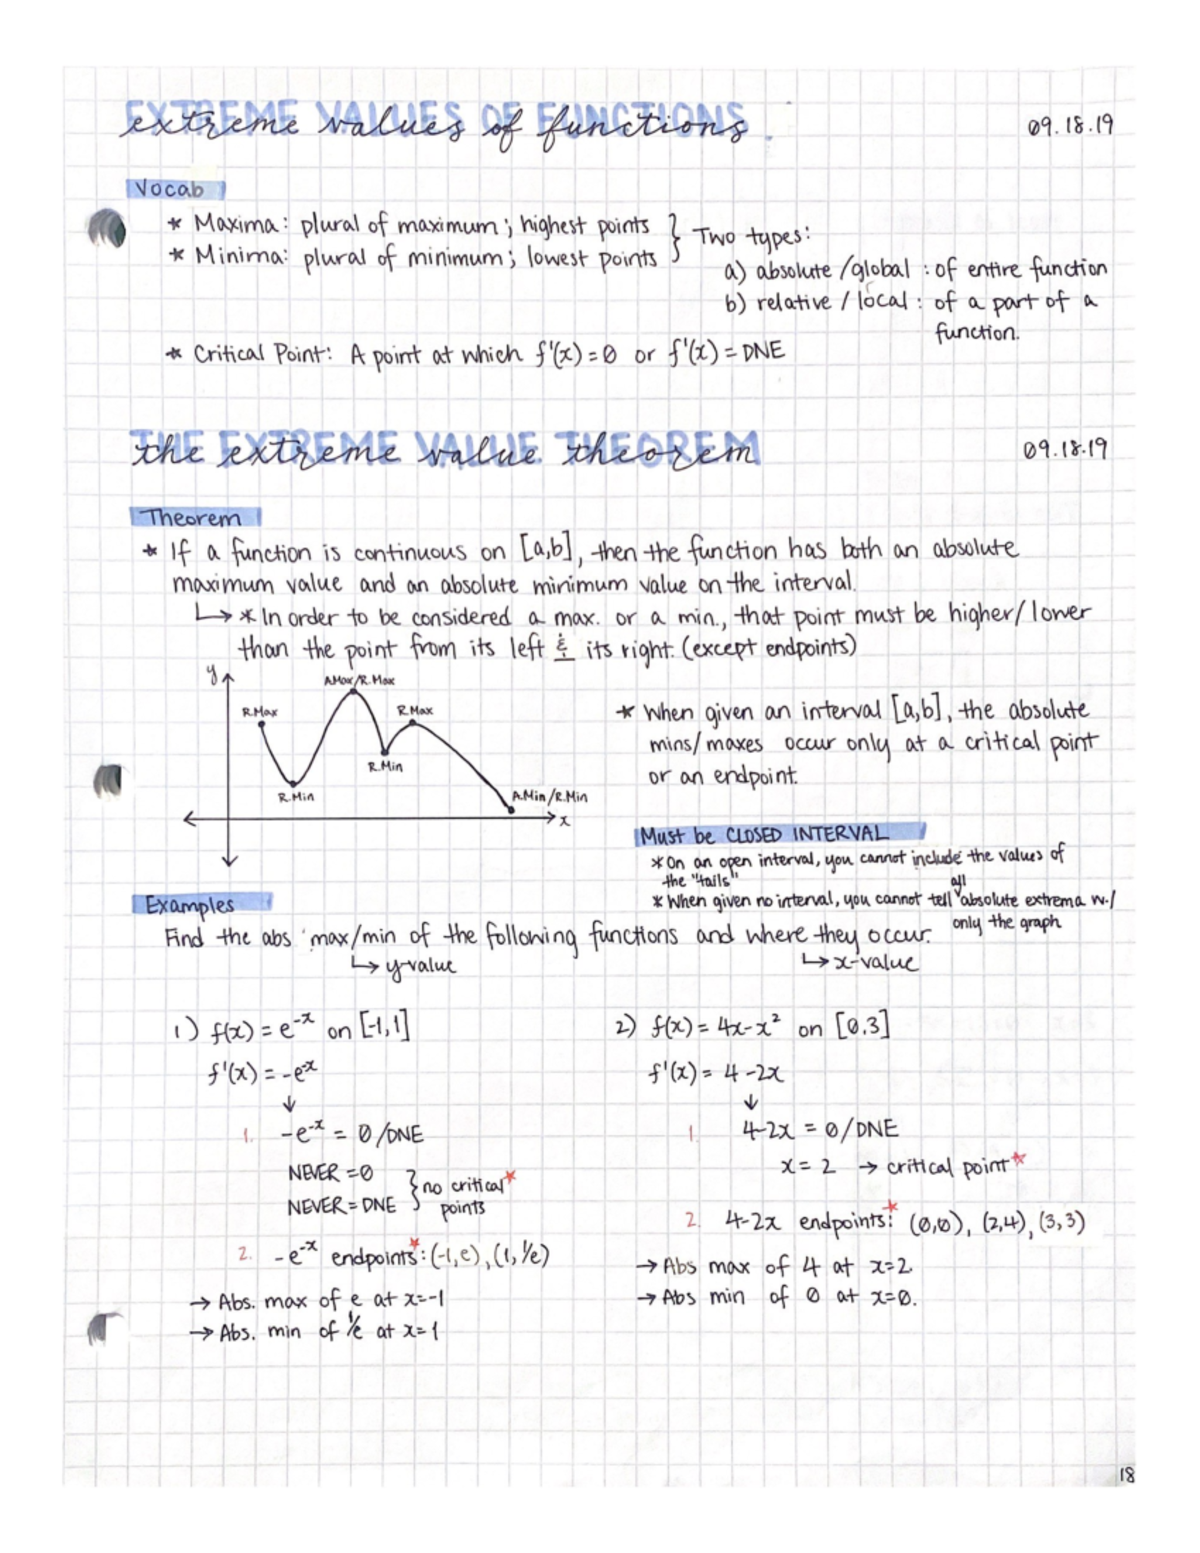 extreme values of functions
09.18.19
Vocab
* Maxima: plural of maximum; highest points
* Minima: plural of minimum; lowest points
} Two types:
a) absolute/global : of entire function
b) relative / local : of a part of a
function.
* Critical Point: A point at which f'(x)=0 or f'(x)=DNE
the extreme value theorem
09.18.19
Theorem
* If a function is continuous on [a,b], then the function has both an absolute
maximum value and an absolute minimum value on the interval.
↳ * In order to be considered a max. or a min., that point must be higher/lower
than the point from its left & its right. (except endpoints)
y
A.Max/R.Max
R.Max
R.Max
R.Min
R.Min
A.Min/R.Min
x
* When given an interval [a,b], the absolute
mins/maxes occur only at a critical point
or an endpoint.
Must be CLOSED INTERVAL
* On an open interval, you cannot include the values of
the "tails"
* When given no interval, you cannot tell all absolute extrema w./
only the graph
Examples
Find the abs max/min of the following functions and where they occur.
↳ y-value
↳ x-value
1) f(x) = e^-x on [-1,1]
f'(x) = -e^-x
↓
1. -e^-x = 0/DNE
NEVER = 0
NEVER = DNE
} no critical*
points
2. -e^-x endpoints*: (-1,e), (1,1/e)
→ Abs. max of e at x=-1
→ Abs. min of 1/e at x=1
2) f(x) = 4x-x² on [0,3]
f'(x) = 4-2x
↓
1. 4-2x = 0/DNE
x = 2 → critical point*
2. 4-2x endpoints*: (0,0), (2,4), (3,3)
→ Abs max of 4 at x=2
→ Abs min of 0 at x=0.
18